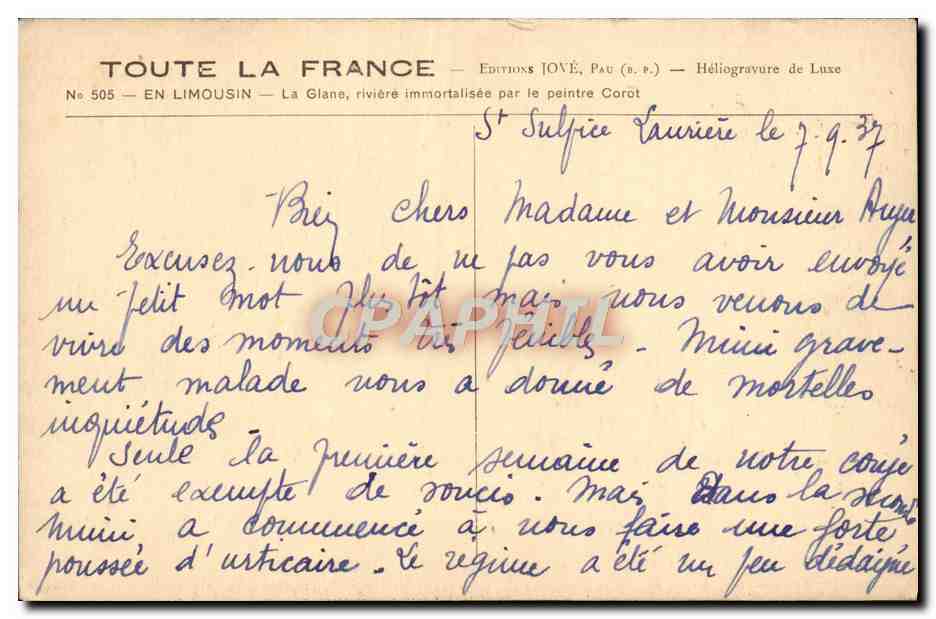 TOUTE LA FRANCE — EDITIONS JOVÉ, PAU (B. P.) — Héliogravure de Luxe
No 505 — EN LIMOUSIN — La Glane, rivière immortalisée par le peintre Corot
St Sulpice Laurière le 7.9.37
Bien chers Madame et Monsieur
Excusez-nous de ne pas vous avoir envoyé
un petit mot plus tôt mais nous venons de
vivre des moments très pénibles - Mimi grave-
ment malade nous a donné de mortelles
inquiétudes
Seule la première semaine de notre congé
a été exempte de soucis. Mais dans la seconde
Mimi a commencé à nous faire une forte
poussée d'urticaire. Le régime a été un peu dédaigné
CPAPHIL